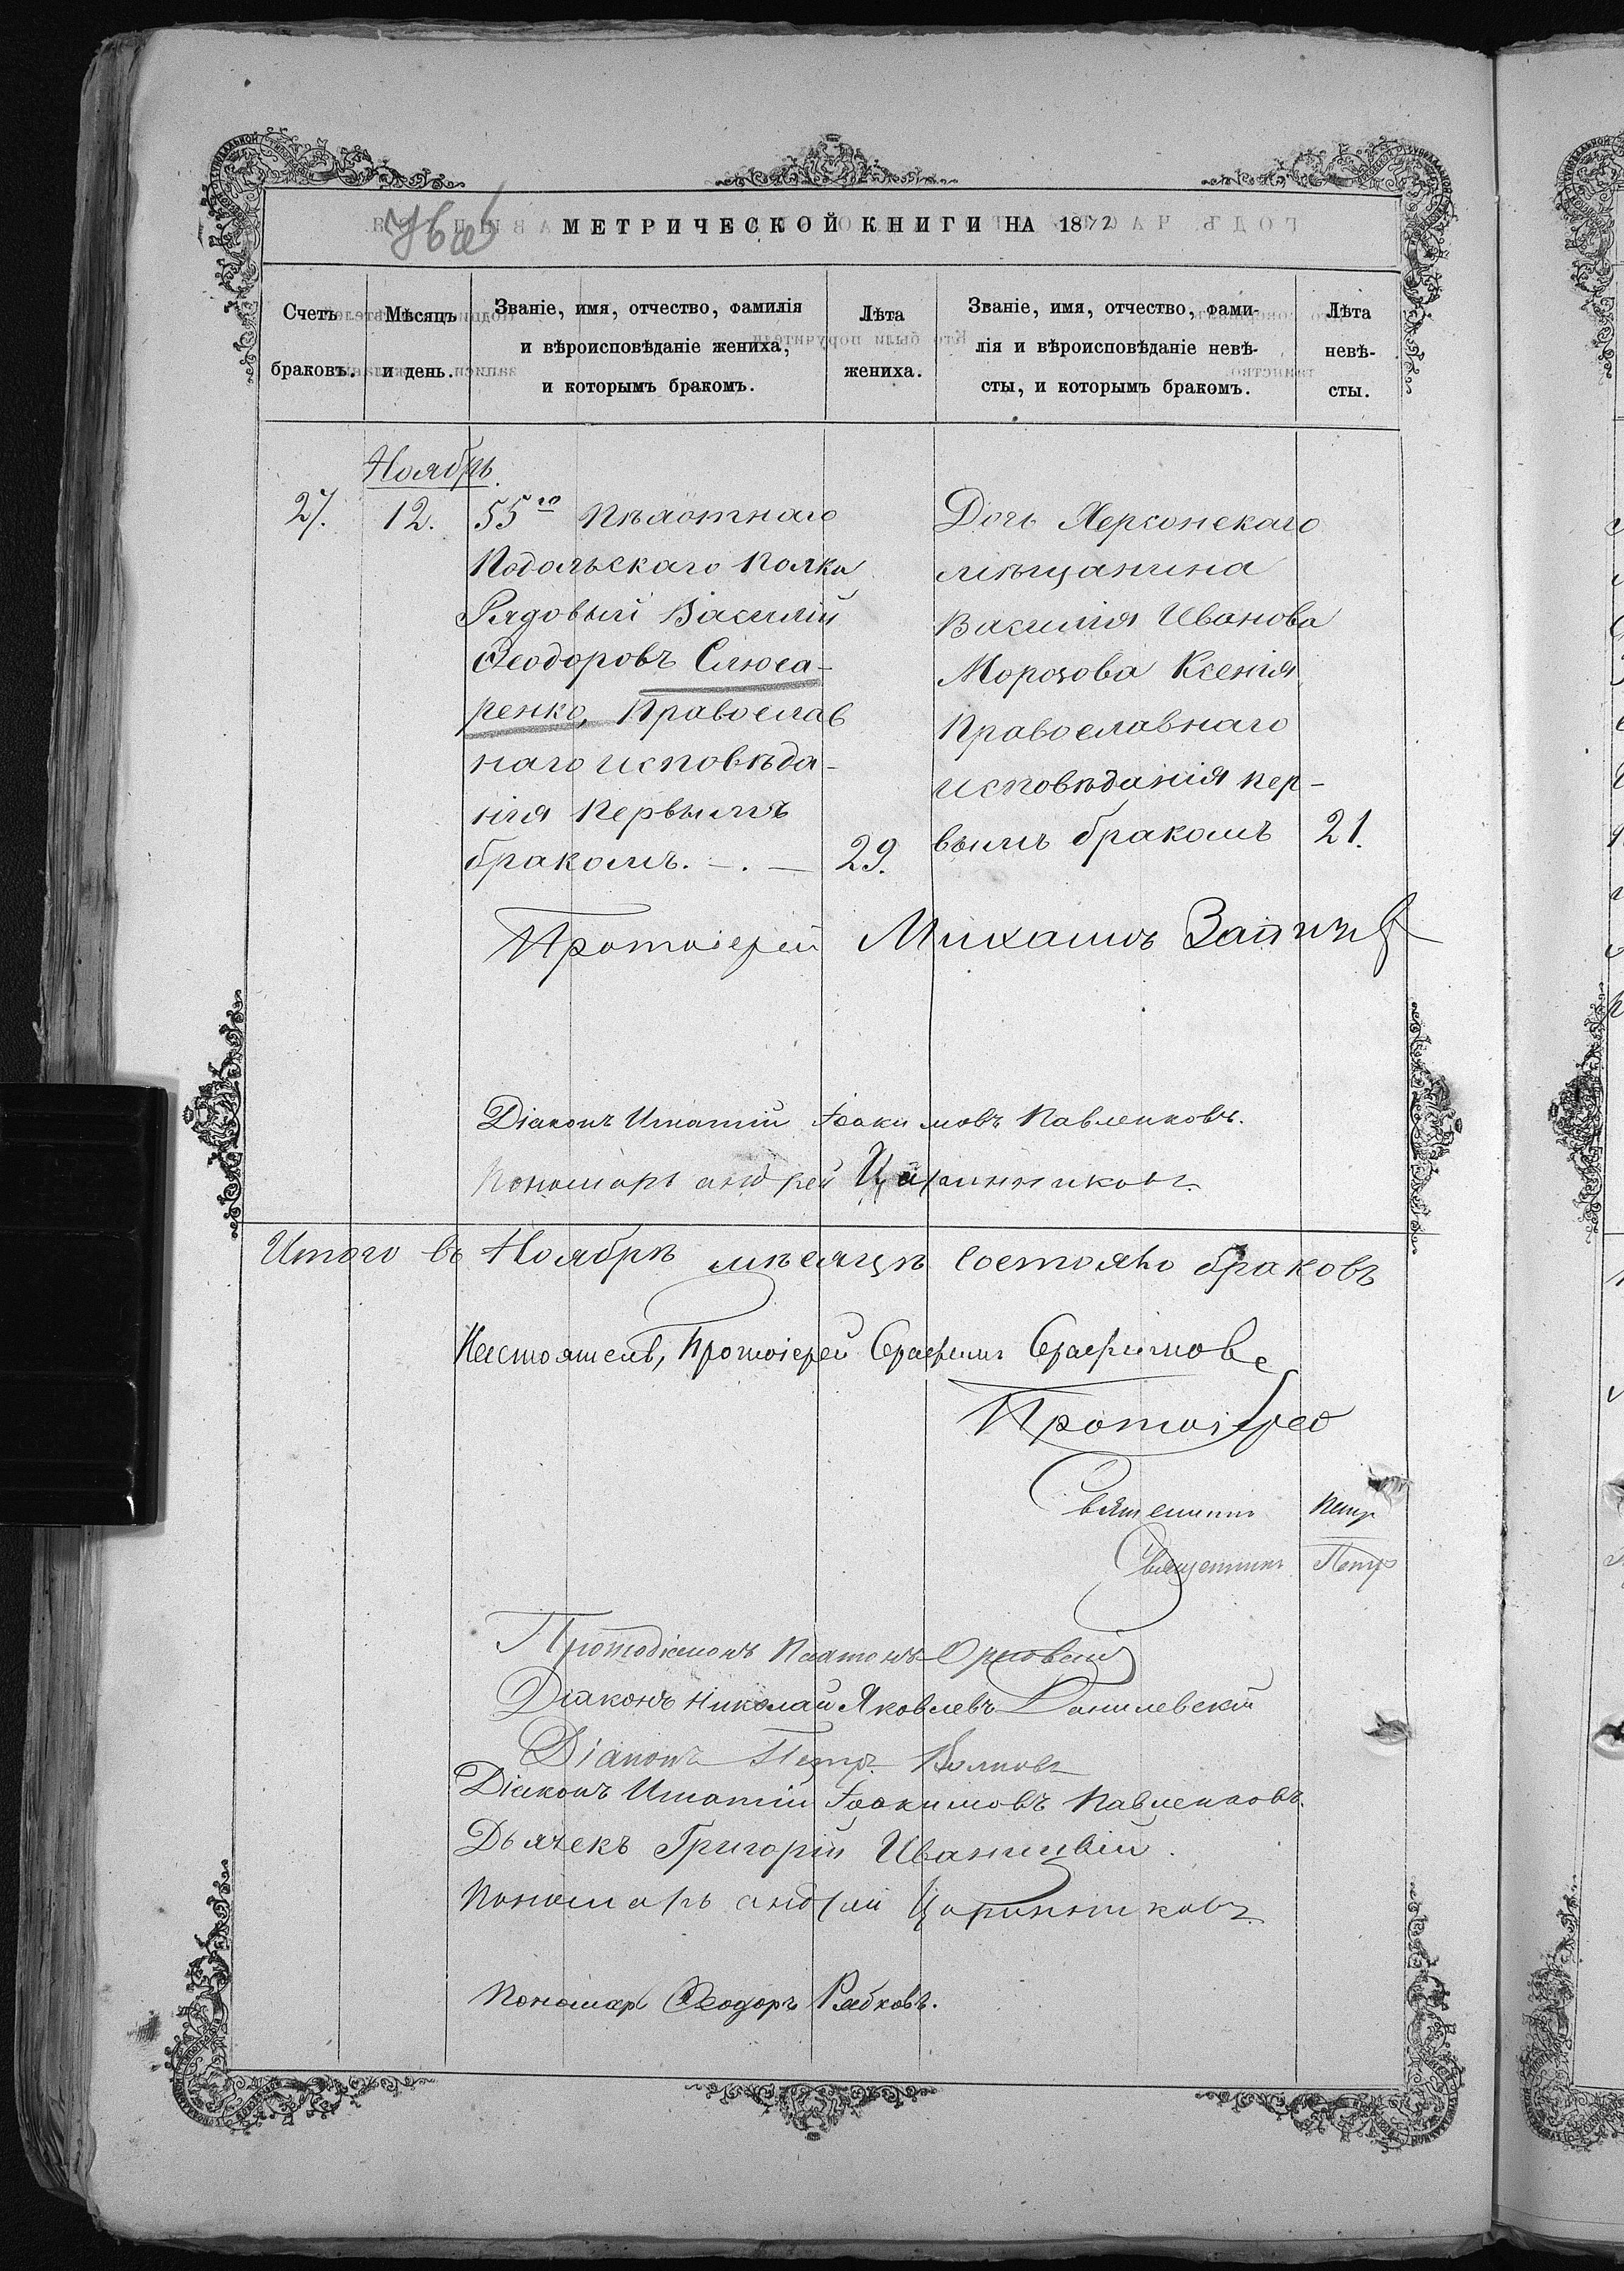 МЕТРИЧЕСКОЙ КНИГИ НА 1872
Счетъ браковъ.
Мѣсяцъ и день.
Званіе, имя, отчество, фамилія
и вѣроисповѣданіе жениха,
и которымъ бракомъ.
Лѣта жениха.
Званіе, имя, отчество, фами-
лія и вѣроисповѣданіе невѣ-
сты, и которымъ бракомъ.
Лѣта невѣ-
сты.
Ноябрь.
27. 12.
55го Пѣхотнаго
Подольскаго Полка
Рядовый Василій
Ѳеодоровъ Слюса-
ренко, Православ
наго исповѣда-
нія Первымъ
бракомъ. — . — 29.
Дочь Херсонскаго
мѣщанина
Василія Иванова
Морозова Ксенія
Православнаго
исповѣданія пер-
вымъ бракомъ 21.
Протоіерей Михаилъ
Діаконъ Игнатій Іоакимовъ Павленковъ.
Пономарь Андрей Царинниковъ.
Итого въ Ноябрѣ мѣсяцѣ состояло браковъ
Настоятель, Протоіерей Серафимъ Серафимовъ
Протоіерей
Священникъ Петръ
Священникъ Петръ
Протодіаконъ Платонъ Орловскій
Діаконъ Николай Яковлевъ Данилевскій
Діаконъ Петръ Волковъ
Діаконъ Игнатій Іоакимовъ Павленковъ.
Дьячекъ Григорій Иваницкій.
Пономарь Андрей Царинниковъ
Пономарь Ѳеодоръ Рябковъ.